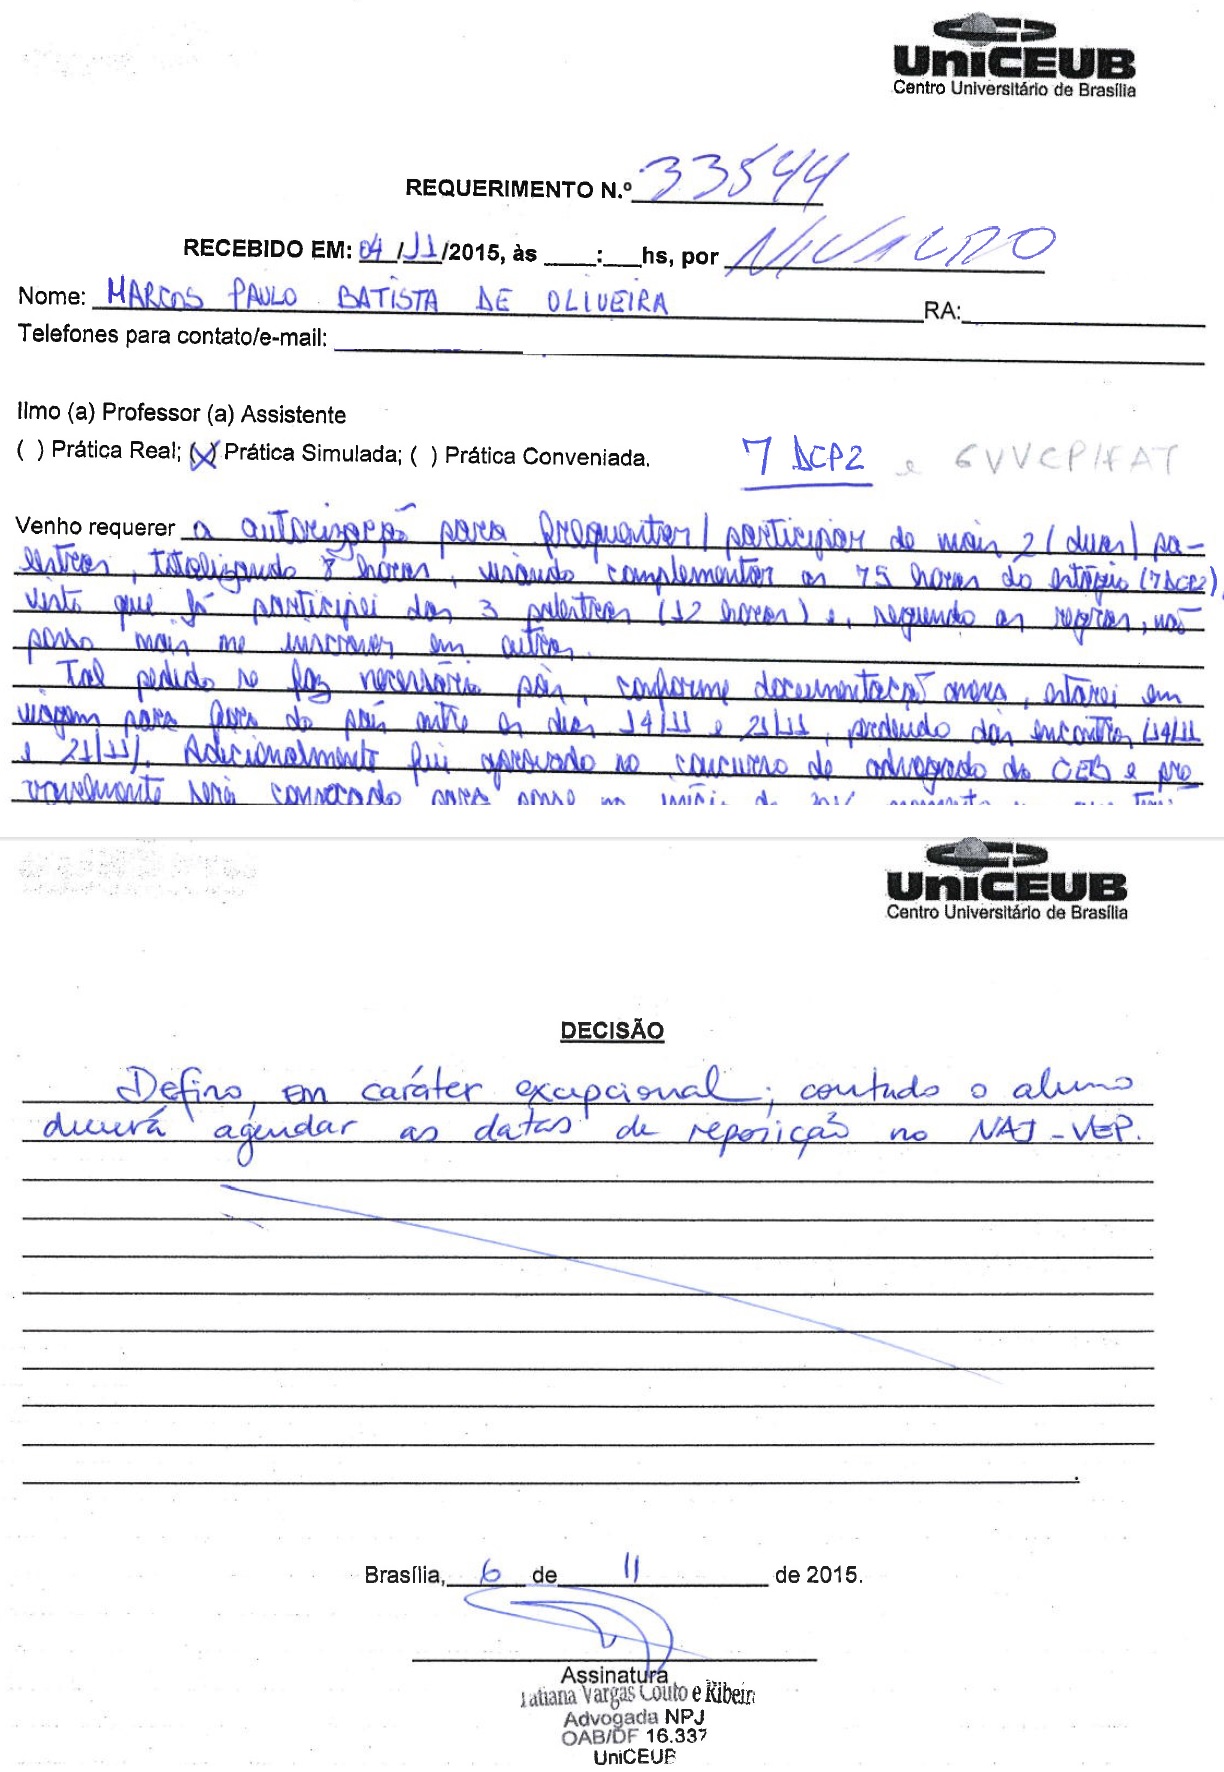 UniCEUB
Centro Universitário de Brasília
REQUERIMENTO N.º 33544
RECEBIDO EM: 04/11/2015, às ____:___hs, por NIVALDO
Nome: MARCOS PAULO BATISTA DE OLIVEIRA RA:
Telefones para contato/e-mail:
Ilmo (a) Professor (a) Assistente
( ) Prática Real; (X) Prática Simulada; ( ) Prática Conveniada. 7 DCP2 e 6VVCP/FAT
Venho requerer a autorização para frequentar/participar de mais 2 (duas) pa-
lestras, totalizando 8 horas, visando complementar as 75 horas do estágio (7DCP2),
visto que já participei das 3 palestras (12 horas) e, segundo as regras, não
posso mais me inscrever em outras.
Tal pedido se faz necessário pois, conforme documentação anexa, estarei em
viagem para fora do país entre os dias 14/11 e 21/11, perdendo dois encontros (14/11
e 21/11). Adicionalmente fui aprovado no concurso de advogado da CEB e pro
vavelmente serei convocado para posse no início de
UniCEUB
Centro Universitário de Brasília
DECISÃO
Defiro, em caráter excepcional; contudo o aluno
deverá agendar as datas de reposição no NAJ-VEP.
Brasília, 6 de 11 de 2015.
Assinatura
Tatiana Vargas Couto e Ribeir
Advogada NPJ
OAB/DF 16.337
UniCEUB